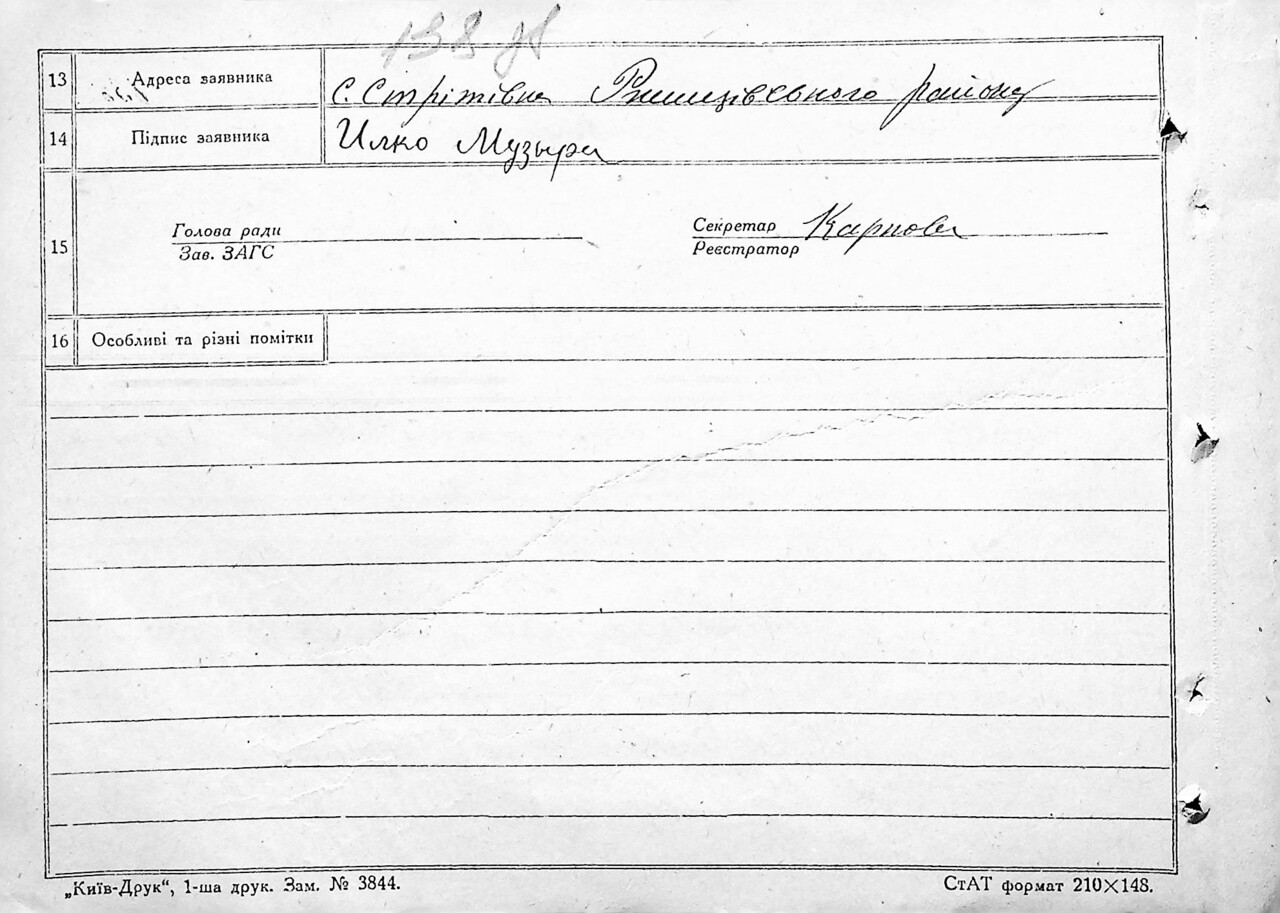 138
13 Адреса заявника с. Стрітівка Ржищівського району
14 Підпис заявника Илко Музыра
15 Голова ради
Зав. ЗАГС
Секретар Карпова
Реєстратор
16 Особливі та різні помітки
„Київ-Друк“, 1-ша друк. Зам. № 3844.
СтАТ формат 210×148.